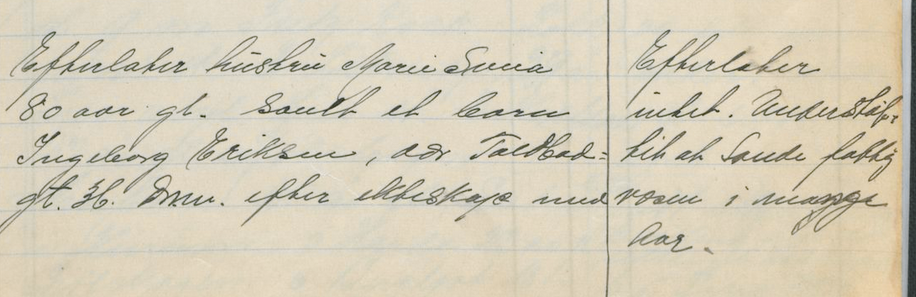 Efterlater hustru Marie
80 aar gl. samt et barn
Ingeborg Eriksen, adr Toldbod=
gt. 36. Dmn. efter ekteskap med
Efterlater
intet. Understøt=
tet at Sande fattig
væsen i mange
Aar.